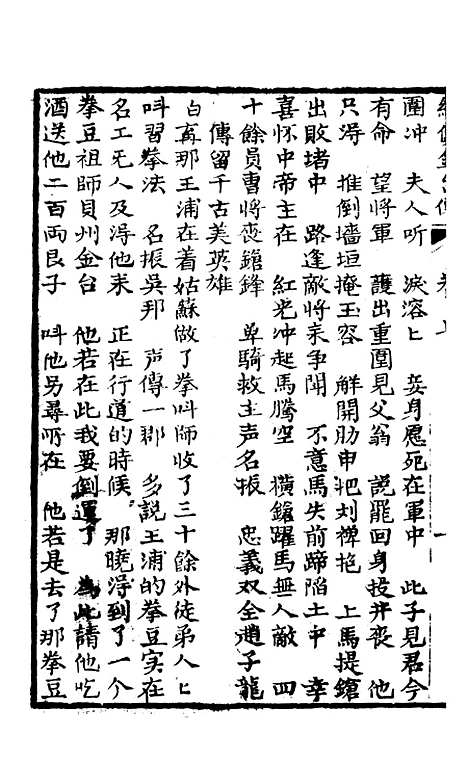 圍冲　夫人听　淚溶匕　妾身愿死在軍中　此子見君今
有命　望將軍　護出重圍見父翁　説罷回身投井喪　他
只淂　推倒墻垣掩玉容　解開肋甲把刘禅抱　上馬提鎗
出敗堵中　路逢敵將来争鬧　不意馬失前蹄陷土中　幸
喜怀中帝主在　紅光冲起馬騰空　橫鎗躍馬無人敵　四
十餘員曹將丧鎗鋒　单騎救主声名振　忠義双全趙子龍
傳留千古美英雄
白离那王浦在着姑蘇做了拳呌師收了三十餘外徒弟人匕
呌習拳法　名振吳邦　声傳一郡　多説王浦的拳豆实在
名工无人及淂他来　正在行道的時候　那曉淂到了一个
拳豆祖師貝州金台　他若在此我要倒運了　為此請他吃
酒送他二百両艮子　呌他另尋所在　他若是去了那拳豆